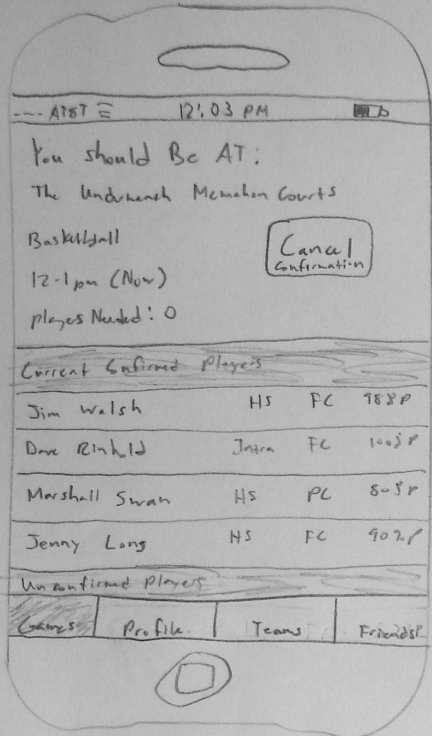 AT&T 12:03 PM
You should Be AT:
The Undurneath Memahon Courts
Basketball
Cancel
Confirmation
12-1pm (Now)
players Needed: 0
Current Confirmed Players
Jim Walsh HS FC 98% P
Dave Rinhold Intra FC 100% P
Marshall Swan HS PC 80% P
Jenny Long HS FC 90% P
Unconfirmed Players
Games Profile Teams Friends